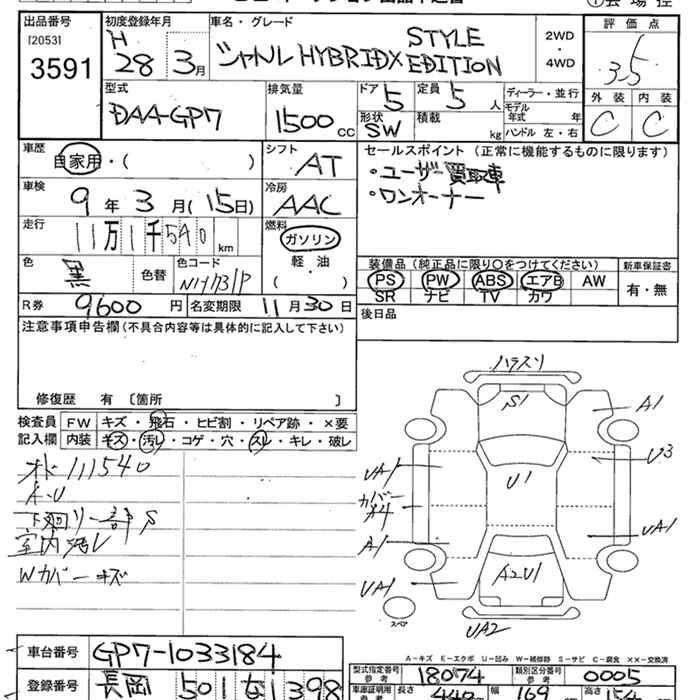 出品番号 初度登録年月 車名・グレード 評価点
[2053]
3591
H
28 3月
シャトル HYBRIDX STYLE EDITION
2WD
・
4WD
3.5
外装 内装
C C
型式
DAA-GP7
排気量
1500 CC
ドア
5
定員
5 人
ディーラー・並行
形状
SW
積載 kg
モデル年式 年
ハンドル 左・右
車歴
自家用・( )
シフト
AT
セールスポイント (正常に機能するものに限ります)
・ユーザー買取車
・ワンオーナー
車検
9年 3月(15日)
冷房
AAC
走行
11万1千540 km
燃料
ガソリン
軽・油
( )
色
黒
色替
色コード
NH731P
装備品 (純正品に限り○をつけてください) 新車保証書
PS PW ABS エアB AW
SR ナビ TV カワ
有・無
R券 9600円 名変期限 11月30日
後日品
注意事項申告欄(不具合内容等は具体的に記入して下さい)
修復歴 有 [箇所 ]
検査員
記入欄
FW キズ・飛石・ヒビ割・リペア跡・×要
内装 キズ・汚レ・コゲ・穴・スレ・キレ・破レ
オド 111540
A・U
下廻り一部S
室内汚レ
Wカバーキズ
ハラスリ
S1
A1
UA1
U3
U1
カバー
A4
A1
UA1
UA1
A2U1
UA2
スペア
A-キズ E-エクボ U-凹み W-補修跡 S-サビ C-腐食 XX-交換済
車台番号 GP7-1033184
登録番号 長岡 501 な1398
型式指定番号 18074 類別区分番号 0005
参考
車庫証明用 参考 長さ 440 幅 169 高さ 154